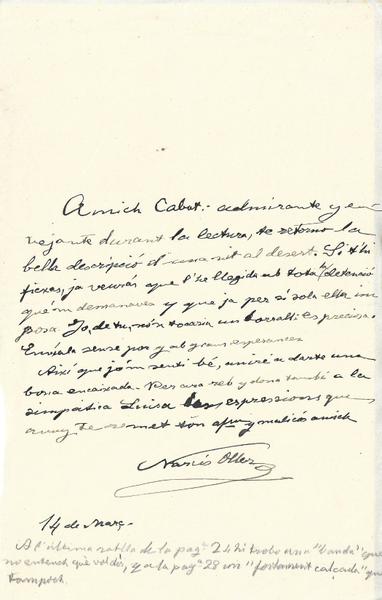 Amich Cabot: admirante y en
vejante durant la lectura, te retorno la
bella descripció d'una nit al desert. Si t'hi
fixas, ja veurás que l'he llegida ab tota l'detenció
que'm demanavas y que ja per sí sola ella im
posa. Jo, de tu, no'n tocaria un borrall: es preciosa.
Envíala sense por y ab grans esperansas
Aixi que jo'm senti bé, aniré a darte una
bona encaixada. Per ara reb y dona també a la
simpática Luisa las expressions que
avuy te remet ton afm y malicós amich
Narcís Oller
14 de Mars.
A l'última ratlla de la pagª 24 hi trobo una "banda" que
no entench què voldir, y a la pagª 28 un "fortament calçada" que
tampoch.